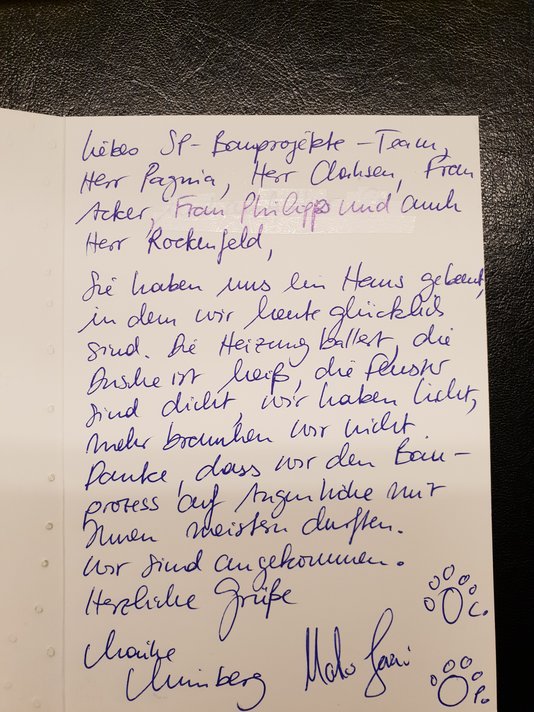 Liebes SP-Bauprojekte-Team,
Herr Pagnia, Herr Clahsen, Frau
Acker, Frau Philipps und auch
Herr Rockenfeld,
Sie haben uns ein Haus gebaut,
in dem wir heute glücklich
sind. Die Heizung ballert, die
Dusche ist heiß, die Fenster
sind dicht, wir haben Licht,
mehr brauchen wir nicht.
Danke, dass wir den Bau-
prozess auf Augenhöhe mit
Ihnen meistern durften.
Wir sind angekommen.
Herzliche Grüße
C.
Maike
P.